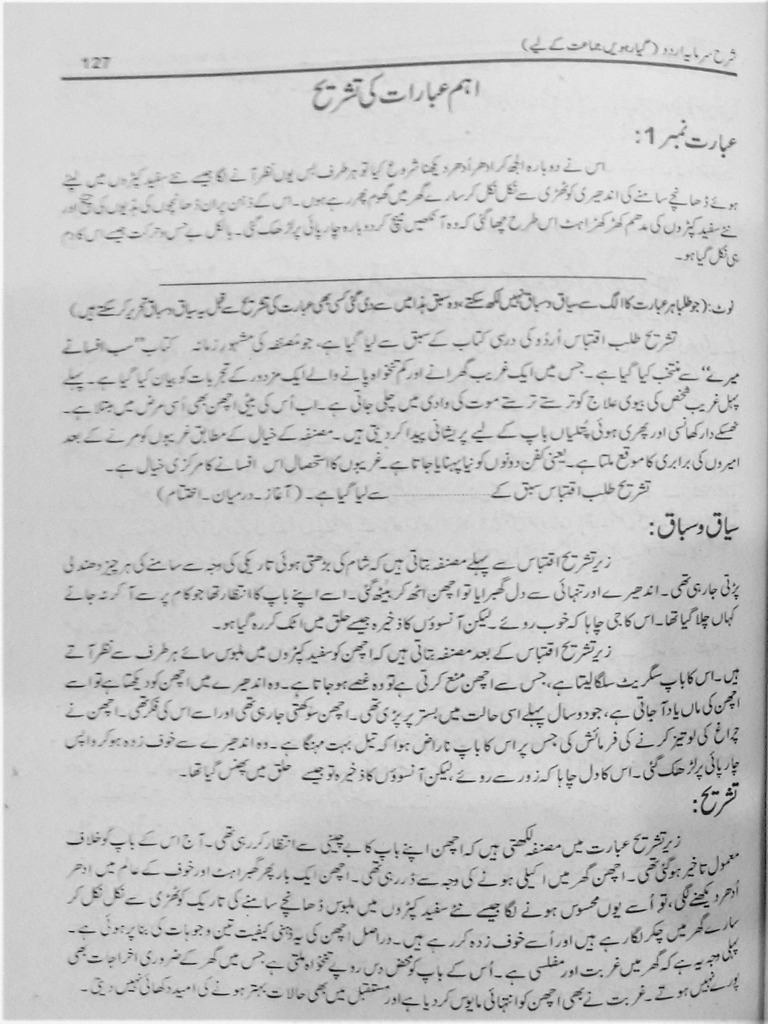 شرح سرمایہ اردو (گیارہویں جماعت کے لیے)
127
اہم عبارات کی تشریح
عبارت نمبر 1:
اس نے دوبارہ اٹھ کر ادھر اُدھر دیکھنا شروع کیا تو ہر طرف بس یوں نظر آنے لگا جیسے نئے سفید کپڑوں میں لپٹے
ہوئے ڈھانچے سامنے کی اندھیری کوٹھڑی سے نکل نکل کر سارے گھر میں گھوم پھر رہے ہوں۔ اس کے ذہن پر ان ڈھانچوں کی ہڈیوں کی چیخ اور
نئے سفید کپڑوں کی مدھم کھڑکھڑاہٹ اس طرح چھا گئی کہ وہ آنکھیں میچ کر دوبارہ چارپائی پر لڑھک گئی۔ بالکل بے حس و حرکت جیسے اس کا دم
ہی نکل گیا ہو۔
نوٹ: (جو طلبا ہر عبارت کا الگ سے سیاق و سباق نہیں لکھ سکتے، وہ سبق ہذا میں سے دی گئی کسی بھی عبارت کی تشریح سے قبل یہ سیاق و سباق تحریر کر سکتے ہیں)
تشریح طلب اقتباس اُردُو کی درسی کتاب کے سبق سے لیا گیا ہے، جو مُصنفہ کی مشہورِ زمانہ کتاب "سب افسانے
میرے" سے منتخب کیا گیا ہے۔ جس میں ایک غریب گھرانے اور کم تنخواہ پانے والے ایک مزدور کے تجربات کو بیان کیا گیا ہے۔ پہلے
پہل غریب شخص کی بیوی علاج کو ترستے ترستے موت کی وادی میں چلی جاتی ہے۔ اب اُس کی بیٹی اچھن بھی اُسی مرض میں مبتلا ہے۔
ٹھسکے دار کھانسی اور پھری ہوئی پُتلیاں باپ کے لیے پریشانی پیدا کر دیتی ہیں۔ مصنفہ کے خیال کے مطابق غریبوں کو مرنے کے بعد
امیروں کی برابری کا موقع ملتا ہے۔ یعنی کفن دونوں کو نیا پہنایا جاتا ہے۔ غریبوں کا استحصال اس افسانے کا مرکزی خیال ہے۔
تشریح طلب اقتباس سبق کے ............ سے لیا گیا ہے۔ (آغاز۔ درمیان۔ اختتام)
سیاق و سباق:
زیرِ تشریح اقتباس سے پہلے مصنفہ بتاتی ہیں کہ شام کی بڑھتی ہوئی تاریکی کی وجہ سے سامنے کی ہر چیز دھندلی
پڑتی جا رہی تھی۔ اندھیرے اور تنہائی سے دل گھبرایا تو اچھن اٹھ کر بیٹھ گئی۔ اسے اپنے باپ کا انتظار تھا جو کام پر سے آ کر نہ جانے
کہاں چلا گیا تھا۔ اس کا جی چاہا کہ خوب روئے۔ لیکن آنسوؤں کا ذخیرہ جیسے حلق میں اٹک کر رہ گیا ہو۔
زیرِ تشریح اقتباس کے بعد مصنفہ بتاتی ہیں کہ اچھن کو سفید کپڑوں میں ملبوس سائے ہر طرف سے نظر آتے
ہیں۔ اس کا باپ سگریٹ سلگا لیتا ہے، جس سے اچھن منع کرتی ہے تو وہ غصے ہو جاتا ہے۔ وہ اندھیرے میں اچھن کو دیکھتا ہے تو اسے
اچھن کی ماں یاد آ جاتی ہے، جو دو سال پہلے اسی حالت میں بستر پر پڑی تھی۔ اچھن سوکھتی جا رہی تھی اور اسے اس کی فکر تھی۔ اچھن نے
چراغ کی لو تیز کرنے کی فرمائش کی جس پر اس کا باپ ناراض ہوا کہ تیل بہت مہنگا ہے۔ وہ اندھیرے سے خوف زدہ ہو کر واپس
چارپائی پر لڑھک گئی۔ اس کا دل چاہا کہ زور سے روئے، لیکن آنسوؤں کا ذخیرہ تو جیسے حلق میں پھنس گیا تھا۔
تشریح:
زیرِ تشریح عبارت میں مصنفہ لکھتی ہیں کہ اچھن اپنے باپ کا بے چینی سے انتظار کر رہی تھی۔ آج اس کے باپ کو خلاف
معمول تاخیر ہو گئی تھی۔ اچھن گھر میں اکیلی ہونے کی وجہ سے ڈر رہی تھی۔ اچھن ایک بار پھر گھبراہٹ اور خوف کے عالم میں ادھر
اُدھر دیکھنے لگی، تو اُسے یوں محسوس ہونے لگا جیسے نئے سفید کپڑوں میں ملبوس ڈھانچے سامنے کی تاریک کوٹھڑی سے نکل نکل کر
سارے گھر میں چکر لگا رہے ہیں اور اُسے خوف زدہ کر رہے ہیں۔ دراصل اچھن کی یہ ذہنی کیفیت تین وجوہات کی بنا پر ہوئی ہے۔
پہلی وجہ یہ ہے کہ گھر میں غربت اور مفلسی ہے۔ اُس کے باپ کو محض دس روپے تنخواہ ملتی ہے جس میں گھر کے ضروری اخراجات بھی
پورے نہیں ہوتے۔ غربت نے بھی اچھن کو انتہائی مایوس کر دیا ہے اور مستقبل میں بھی حالات بہتر ہونے کی امید دکھائی نہیں دیتی۔